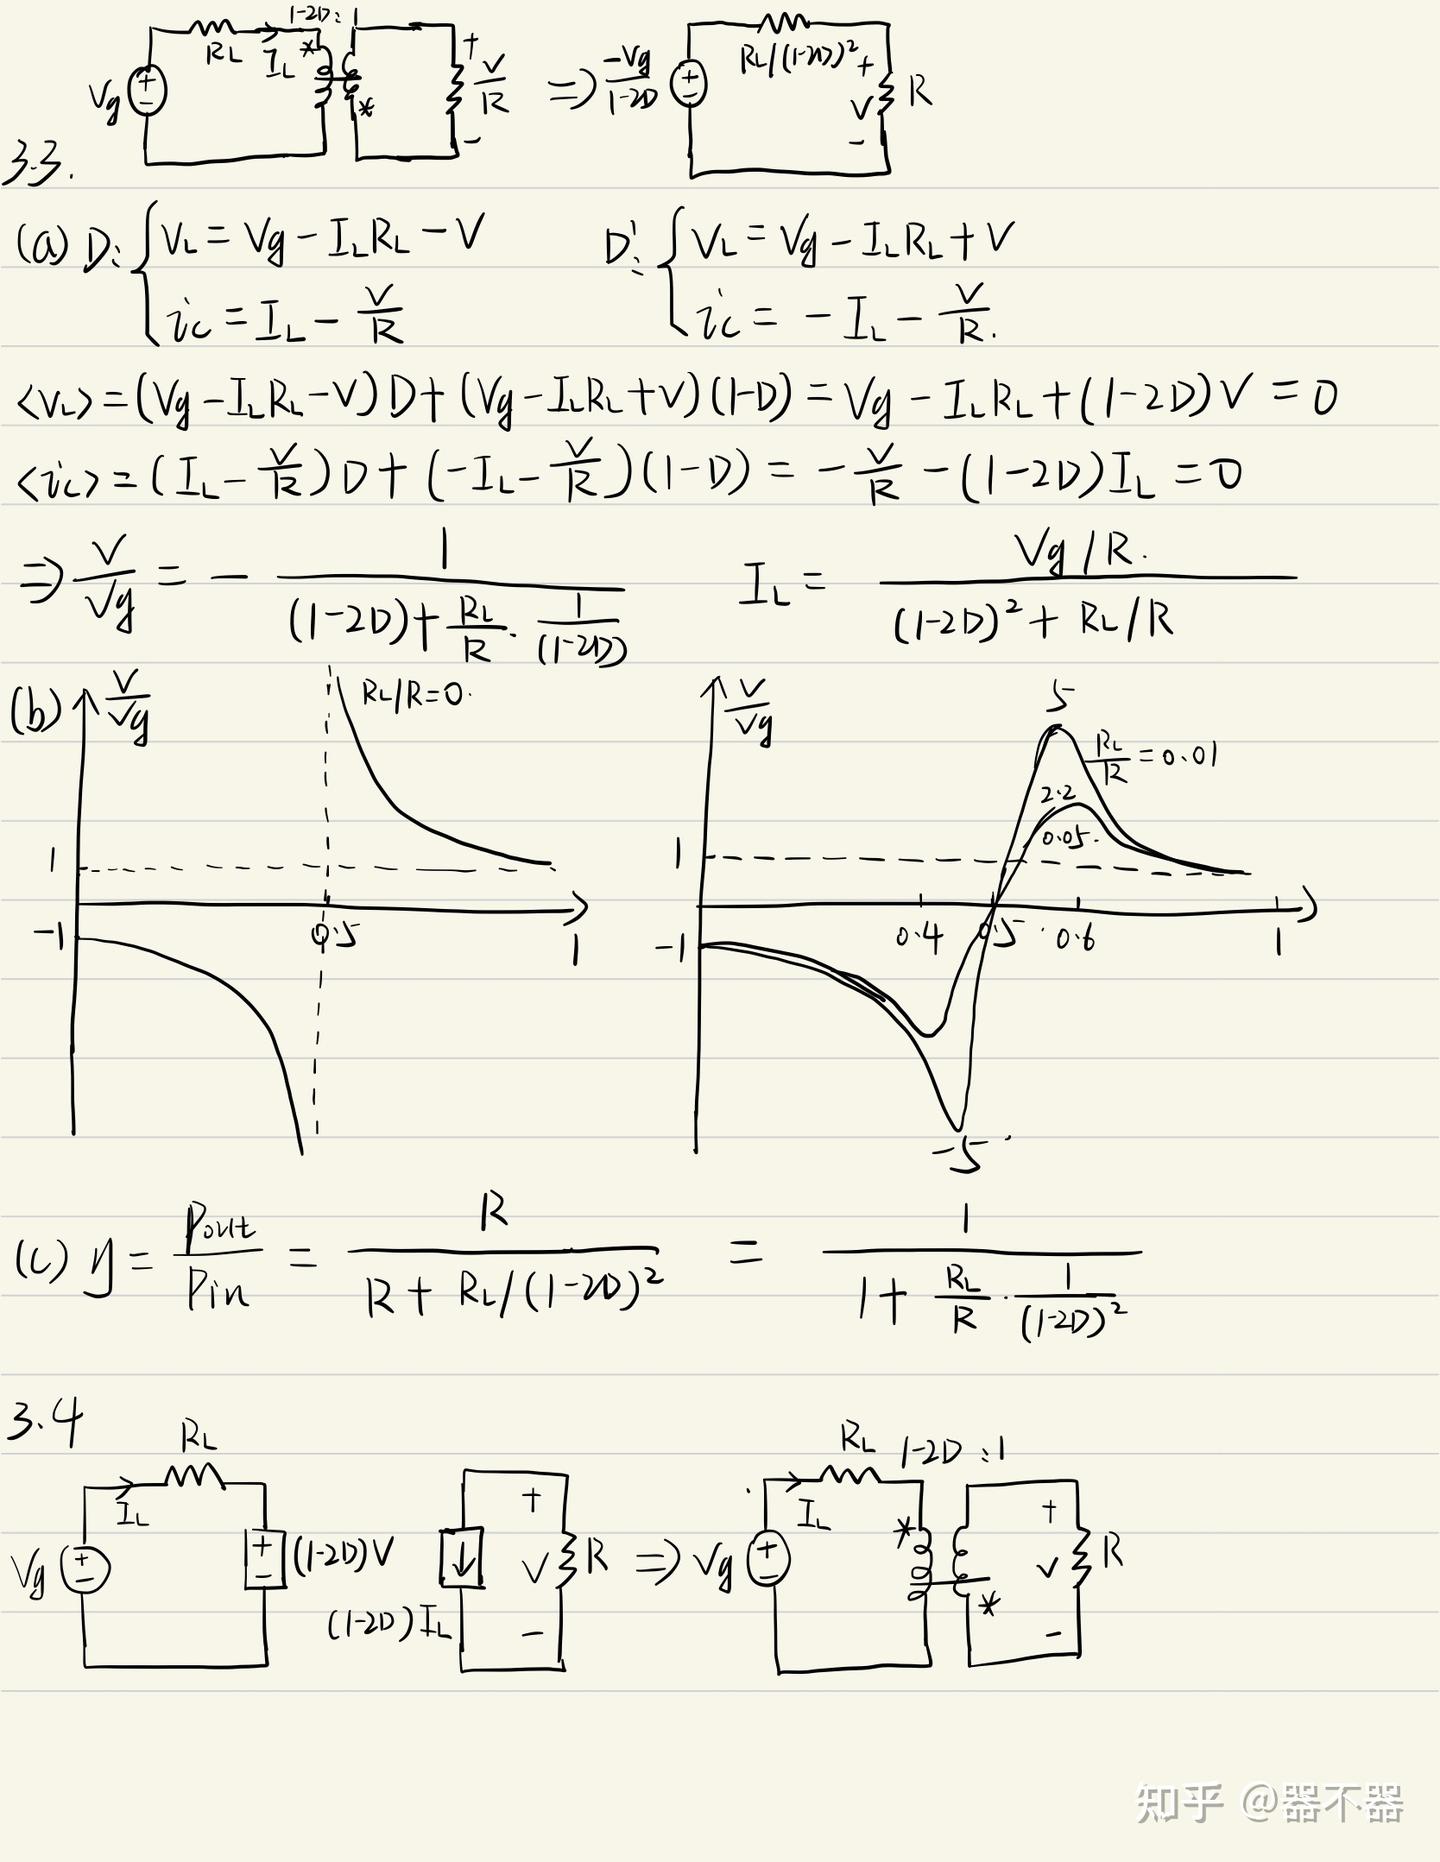 1-2D : 1
Vg + - RL IL * * + V/R - ⇒ -Vg/(1-2D) + - RL/(1-2D)² + V - R
3.3.
(a) D: { VL = Vg - ILRL - V    D': { VL = Vg - ILRL + V
ic = IL - V/R    ic = - IL - V/R.
<VL> = (Vg - ILRL - V) D + (Vg - ILRL + V) (1-D) = Vg - ILRL + (1-2D) V = 0
<ic> = (IL - V/R) D + (-IL - V/R) (1-D) = - V/R - (1-2D) IL = 0
⇒ V/Vg = - 1/((1-2D) + RL/R · 1/(1-2D))    IL = (Vg/R.)/((1-2D)² + RL/R)
(b) V/Vg RL/R=0. V/Vg 5
RL/R = 0.01
2.2
0.05.
1 1
-1 0.5 1 -1 0.4 0.5 0.6 1
-5
(c) η = Pout/Pin = R/(R + RL/(1-2D)²) = 1/(1 + RL/R · 1/(1-2D)²)
3.4
RL RL 1-2D : 1
IL + IL * +
Vg + - + - (1-2D)V ↓ V R ⇒ Vg + - V R
(1-2D) IL - * -
知乎 @器不器